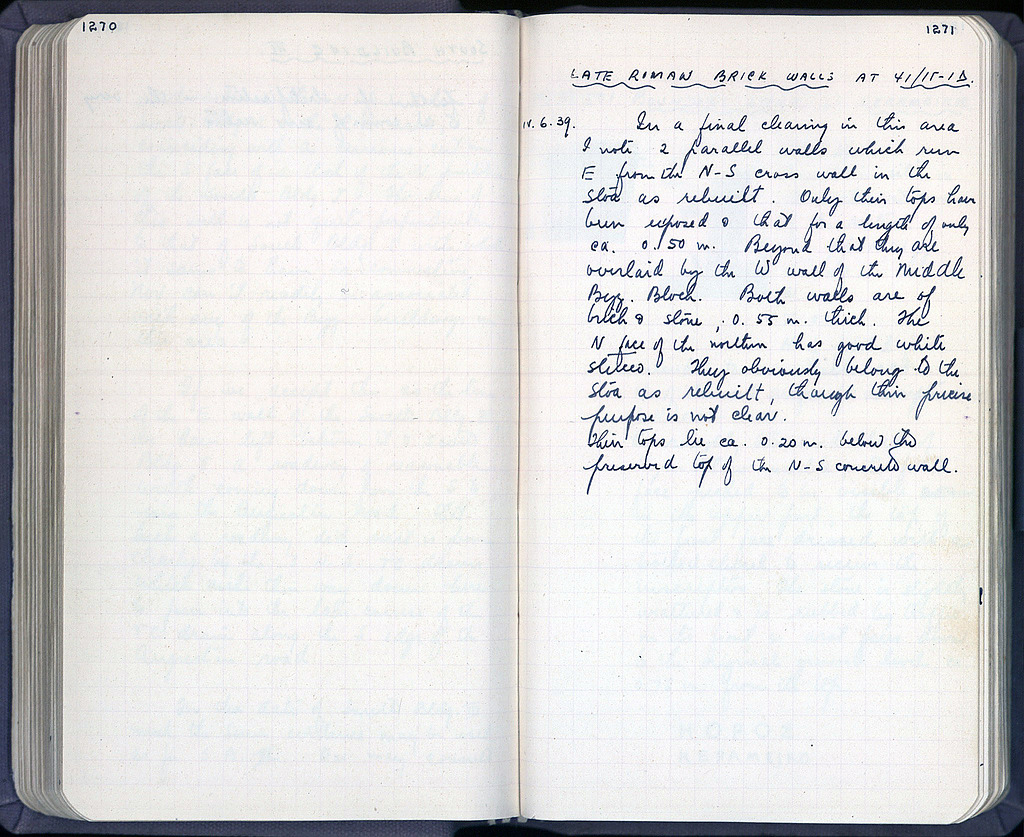 1270
1271
LATE ROMAN BRICK WALLS AT 41/15-1Δ.
IV.6.39. In a final cleaning in this area
I note 2 parallel walls which run
E from the N-S cross wall in the
Stoa as rebuilt. Only their tops have
been exposed & that for a length of only
ca. 0.50 m. Beyond that they are
overlaid by the W wall of the Middle
Byz. Block. Both walls are of
brick & stone, 0.55 m. thick. The
N face of the northern has good white
stucco. They obviously belong to the
Stoa as rebuilt, though their precise
purpose is not clear.
Their tops lie ca. 0.20 m. below the
preserved top of the N-S concrete wall.